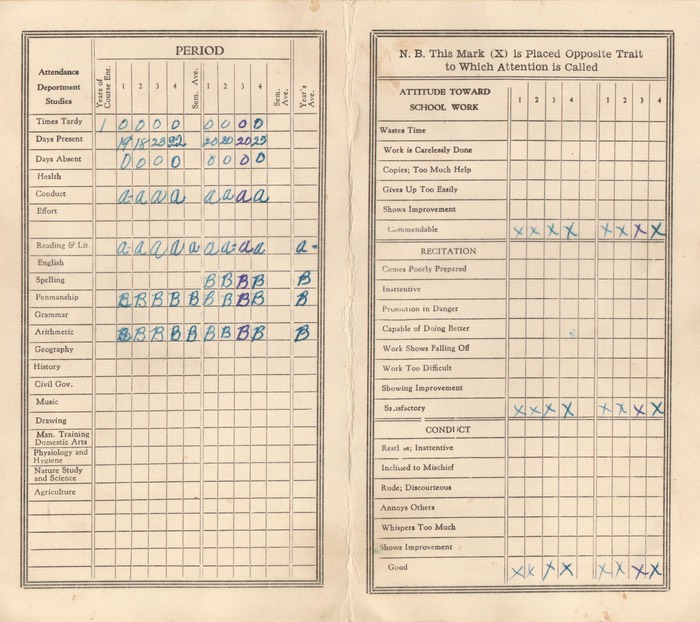 PERIOD
Attendance
Department
Studies
Years of Course Ent. 1 2 3 4 Sem. Ave. 1 2 3 4 Sem. Ave. Year's Ave.
Times Tardy 1 0 0 0 0 0 0 0 0
Days Present 19 18 23 22 20 20 20 25
Days Absent 0 0 0 0 0 0 0 0
Health
Conduct a- a a a a a a a
Effort
Reading & Lit. a- a a a a a a- a a a-
English
Spelling B B B B B
Penmanship B B B B B B B B B B
Grammar
Arithmetic B B B B B B B B B B
Geography
History
Civil Gov.
Music
Drawing
Man. Training
Domestic Arts
Physiology and
Hygiene
Nature Study
and Science
Agriculture
N. B. This Mark (X) is Placed Opposite Trait
to Which Attention is Called
ATTITUDE TOWARD
SCHOOL WORK
1 2 3 4 1 2 3 4
Wastes Time
Work is Carelessly Done
Copies; Too Much Help
Gives Up Too Easily
Shows Improvement
Commendable X X X X X X X X
RECITATION
Comes Poorly Prepared
Inattentive
Promotion in Danger
Capable of Doing Better
Work Shows Falling Off
Work Too Difficult
Showing Improvement
Satisfactory X X X X X X X X
CONDUCT
Restless; Inattentive
Inclined to Mischief
Rude; Discourteous
Annoys Others
Whispers Too Much
Shows Improvement
Good X X X X X X X X